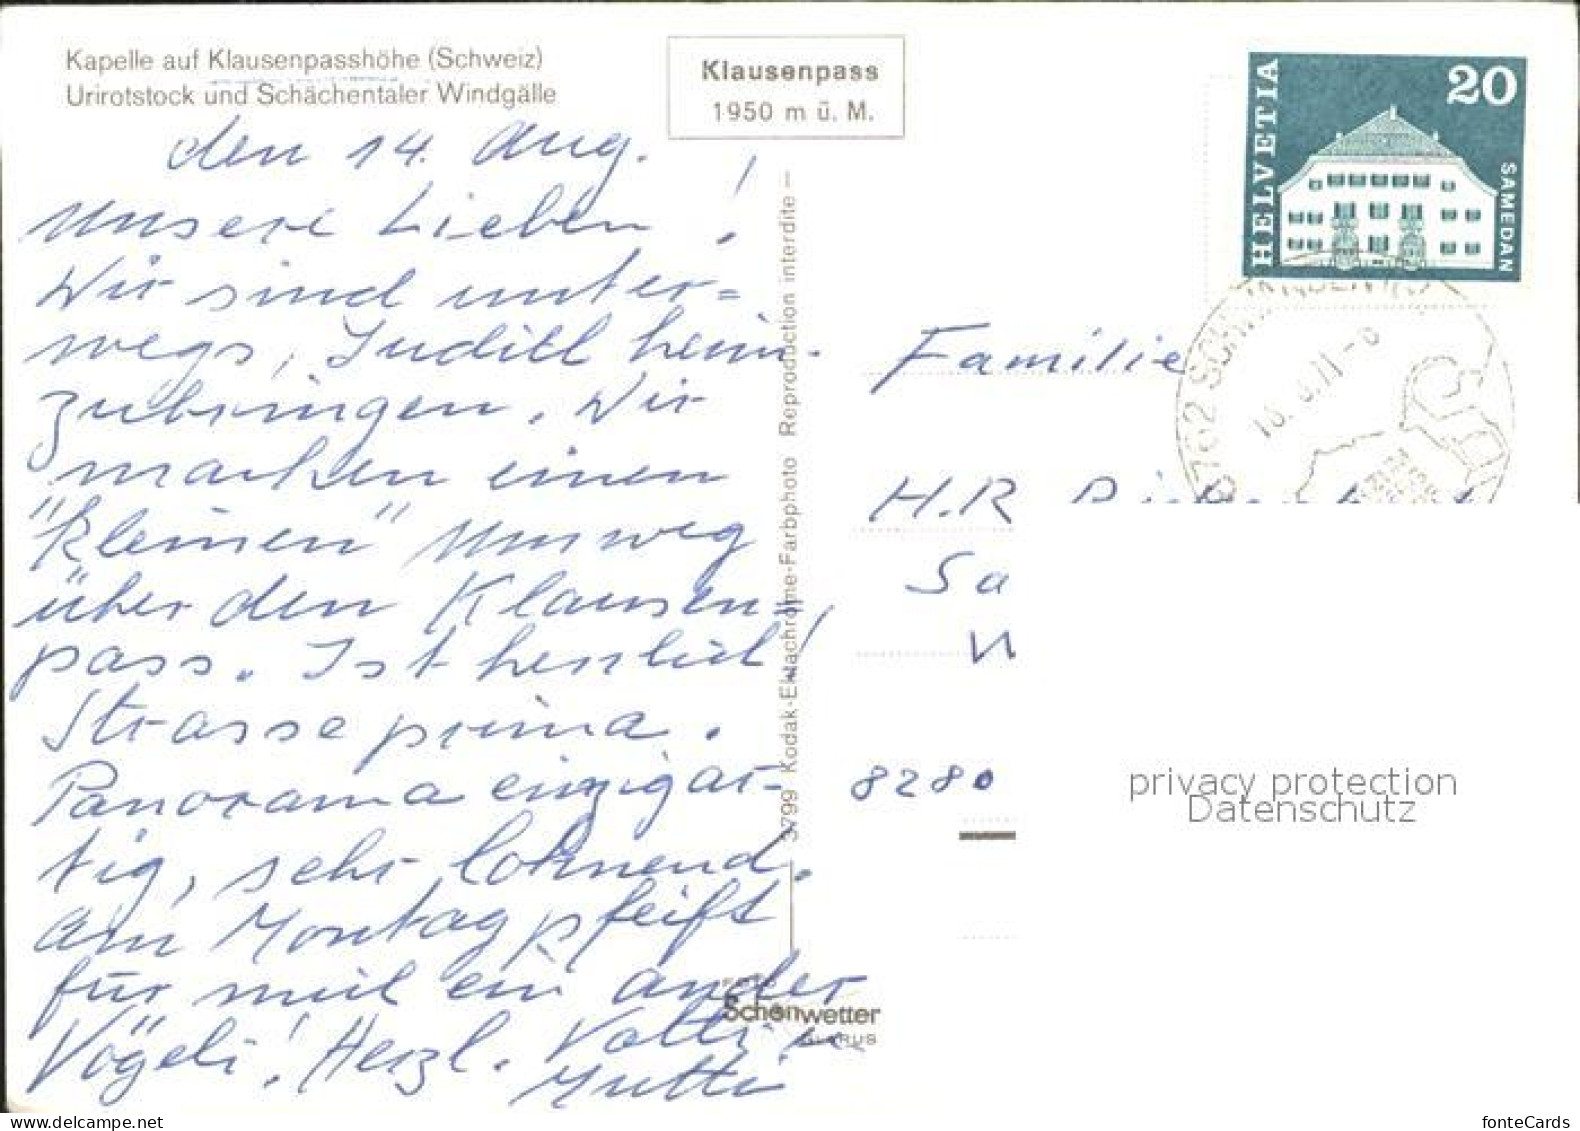 Kapelle auf Klausenpasshöhe (Schweiz)
Urirotstock und Schächentaler Windgälle
Klausenpass
1950 m ü. M.
HELVETIA
20
SAMEDAN
den 14. Aug.
Unsere Lieben!
Wir sind unter=
wegs, Judith heim-
zubringen. Wir
machen einen
"kleinen" Umweg
über den Klausen=
pass. Ist herrlich!
Strasse prima.
Panorama einzigar-
tig, sehr lohnend.
Am Montag pfeift
für mich ein ander
Vögeli! Herzl. Vatti u
Mutti
3799 Kodak-Ektachrome-Farbphoto Reproduction interdite
Foto
Schönwetter
GLARUS
Familie
H.R
Sa
8280
privacy protection
Datenschutz
fonteCards